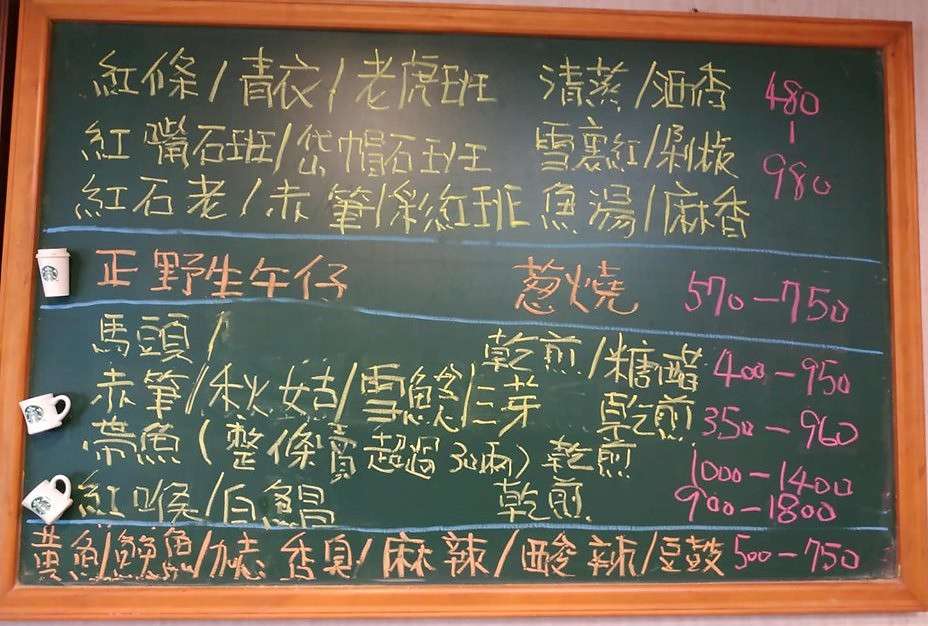 紅條/青衣/老虎班 清蒸/酒香 480
紅嘴石班/岱帽石班 雪裏紅/剁椒 |
紅石老/赤筆/彩紅班 魚湯/麻香 980
正野生午仔 蔥燒 570-750
馬頭/ 乾煎/糖醋 400-950
赤筆/秋姑/雪鱼/三芽 乾煎 350-960
帶魚(整條賣超過30兩)乾煎 1000-1400
紅喉/白鯧 乾煎 900-1800
黃魚/鮸魚/ 香臭/麻辣/酸辣/豆豉 500-750